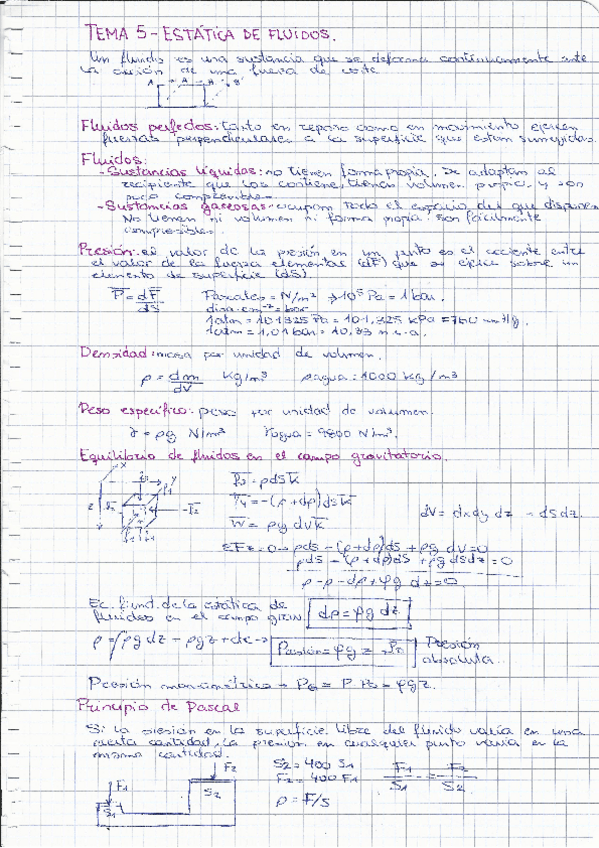 TEMA 5 - ESTÁTICA DE FLUIDOS.
Un fluido es una sustancia que se deforma continuamente ante
la acción de una fuerza de corte
Fluidos perfectos: tanto en reposo como en movimiento ejercen
fuerzas perpendiculares a la superficie que están sumergidos.
Fluidos:
- Sustancias líquidas: no tienen forma propia. Se adaptan al
recipiente que los contiene, tienen volumen propio y son
poco compresibles.
- Sustancias gaseosas: ocupan todo el espacio del que disponen
No tienen ni volumen ni forma propia. Son fácilmente
compresibles.
Presión: el valor de la presión en un punto es el cociente entre
el valor de la fuerza elemental (dF) que se ejerce sobre un
elemento de superficie (dS).
P = dF/dS Pascales = N/m² → 10⁵ Pa = 1 bar.
1 atm = 101325 Pa = 101,325 kPa = 760 mmHg.
1 atm = 1,01 bar = 10,33 m.c.a.
Densidad: masa por unidad de volumen.
ρ = dm/dV kg/m³ ρagua = 1000 kg/m³
Peso específico: peso por unidad de volumen.
γ = ρg N/m³ γagua = 9800 N/m³.
Equilibrio de fluidos en el campo gravitatorio.
F₃ = pdS k
F₄ = -(p + dp)dS k
W = ρg dV k dV = dx dy dz = dS dz
ΣFz = 0 → pdS - (p + dp)dS + ρg dV = 0
pdS - (p + dp)dS + ρg dS dz = 0
p - p - dp + ρg dz = 0
Ec. fund. de la estática de
fluidos en el campo grav. dp = ρg dz
p = ∫ρg dz = ρgz + cte → Presión = ρgz + P₀ Presión
absoluta.
Presión manométrica → PG = P - P₀ = ρgz.
Principio de Pascal
Si la presión en la superficie libre del fluido varía en una
cierta cantidad, la presión en cualquier punto varía en la
misma cantidad.
F1 F2 S1 S2
S2 = 400 S1
F2 = 400 F1
F1/S1 = F2/S2
p = F/S